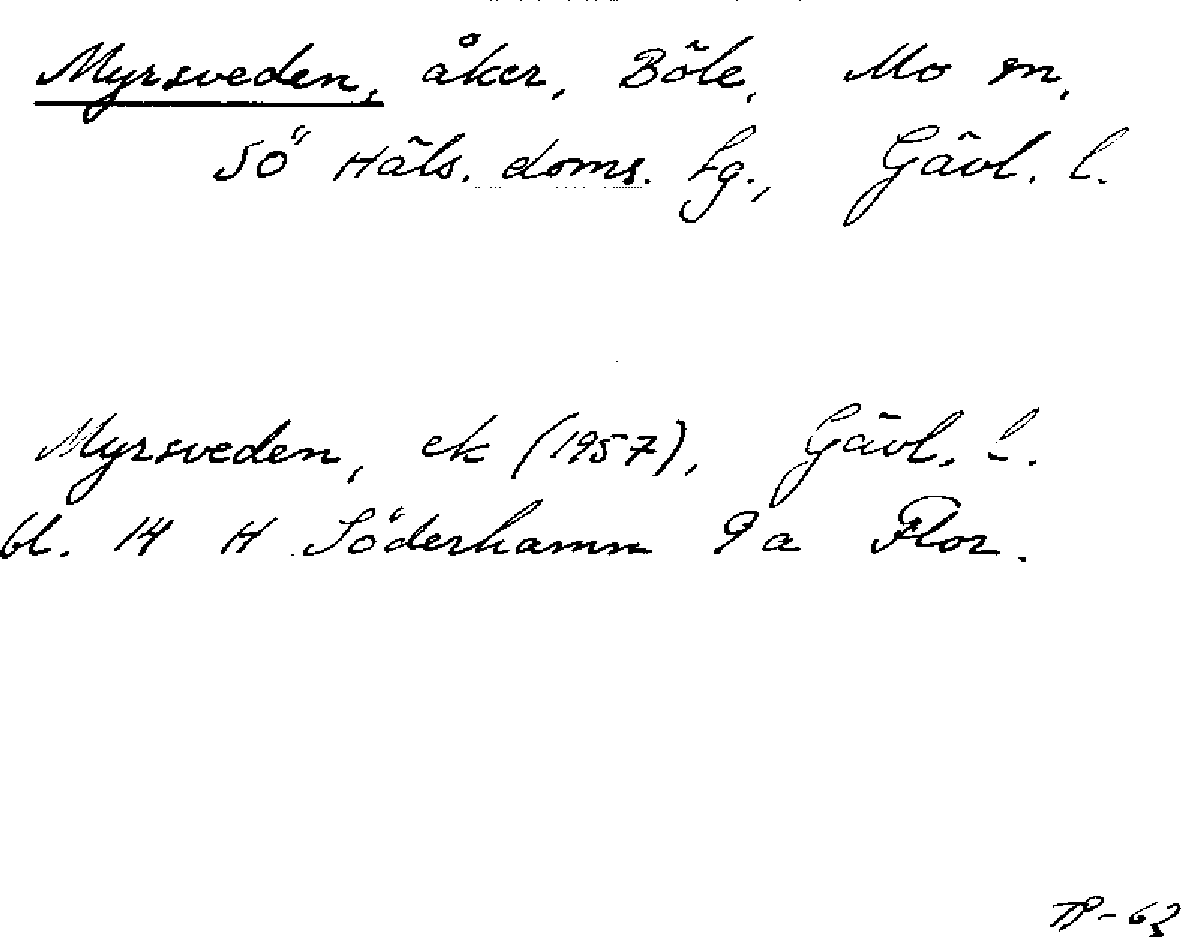 Myrsveden, åker, Böle, Mo sn,
Sö Häls. doms. Lg., Gävl. l.
Myrsveden, ek (1957), Gävl. L.
bl. 14 H Söderhamn 9a Flor.
TP-63